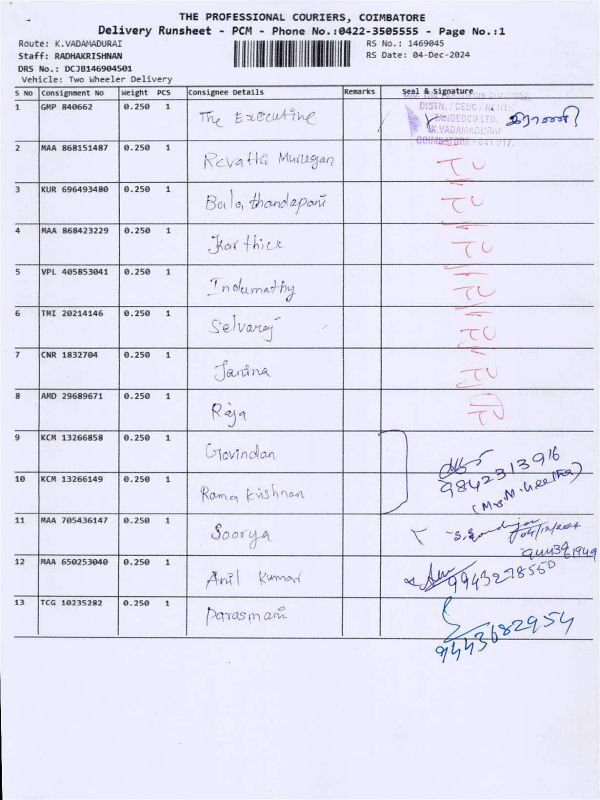 THE PROFESSIONAL COURIERS, COIMBATORE
Delivery Runsheet - PCM - Phone No.:0422-3505555 - Page No.:1
Route: K.VADAMADURAI RS No.: 1469045
Staff: RADHAKRISHNAN RS Date: 04-Dec-2024
DRS No.: DCJB146904501
Vehicle: Two Wheeler Delivery
S No Consignment No Weight PCS Consignee Details Remarks Seal & Signature
1 GMP 840662 0.250 1 The Executive
DISTN. / CEDC / NORTH
TANGEDCO LTD.
K.VADAMADURAI
COIMBATORE - 641 017.
2 MAA 868151487 0.250 1 Revathi Murugan TU
3 KUR 696493480 0.250 1 Bala thandapani TU
4 MAA 868423229 0.250 1 Karthick TU
5 VPL 405853041 0.250 1 Indumathy TU
6 TMI 20214146 0.250 1 Selvaraj TU
7 CNR 1832704 0.250 1 Janina TU
8 AMD 29689671 0.250 1 Raja TU
9 KCM 13266858 0.250 1 Govindan
9842313916
10 KCM 13266149 0.250 1 Rama Krishnan
11 MAA 705436147 0.250 1 Soorya
12 MAA 650253040 0.250 1 Anil Kumar 9943278550
13 TCG 10235282 0.250 1 Parasmani
9443682954